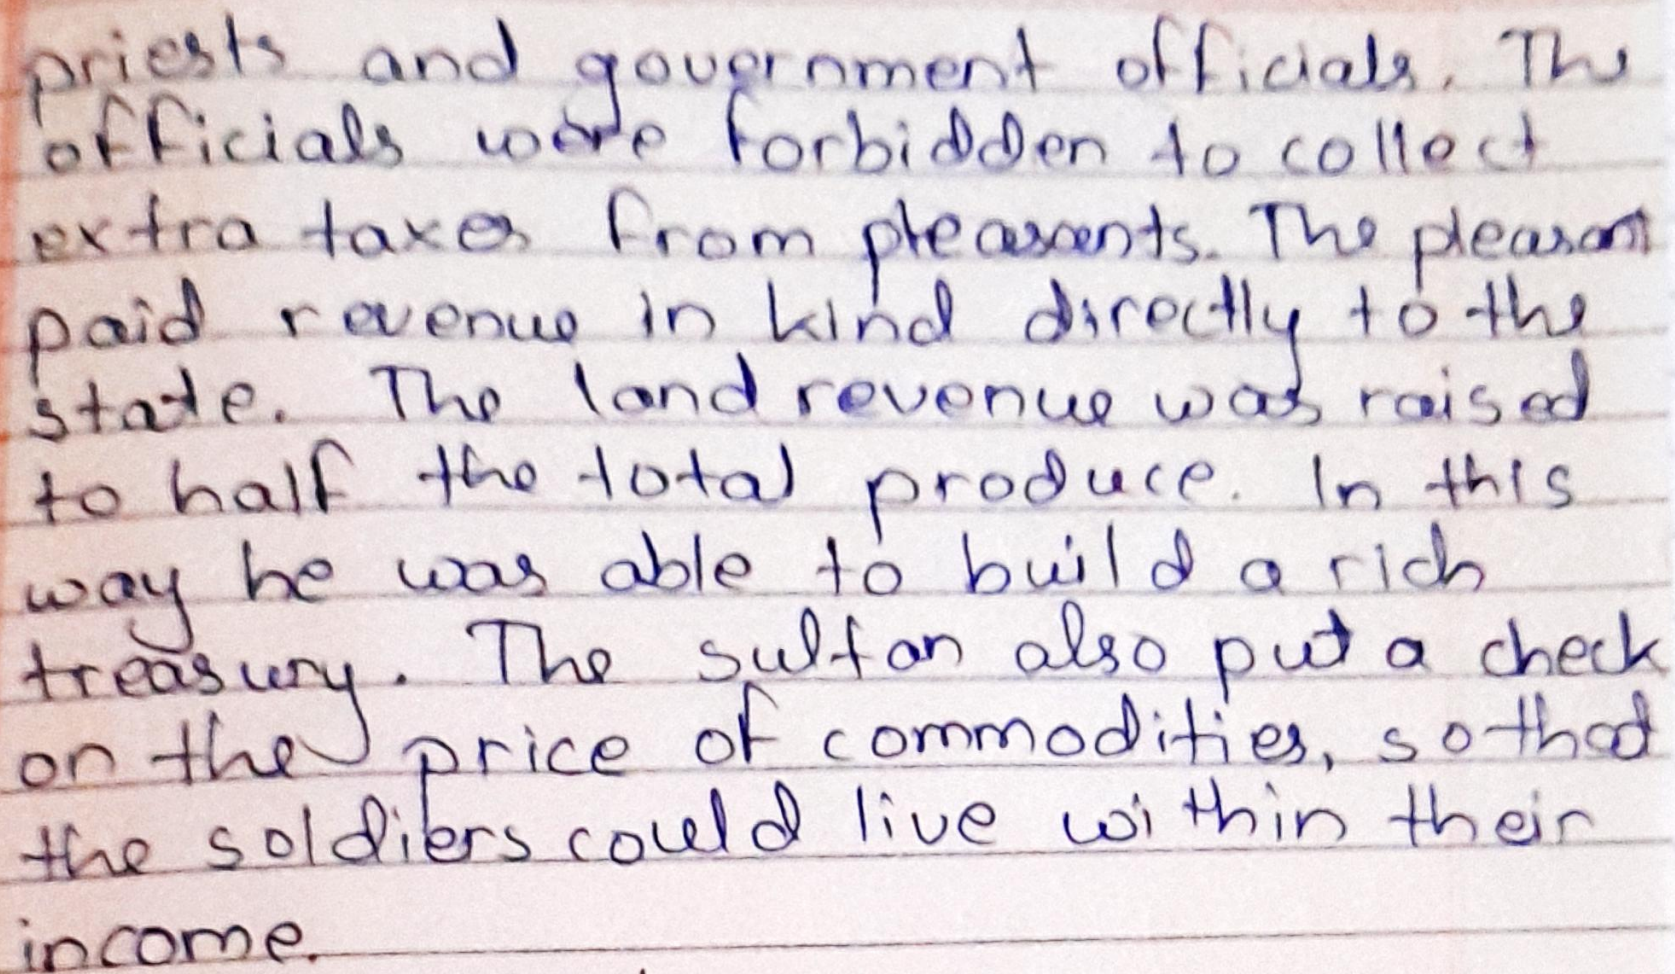 priests and government officials. The
officials were forbidden to collect
extra taxes from pleasants. The pleasant
paid revenue in kind directly to the
state. The land revenue was raised
to half the total produce. In this
way he was able to build a rich
treasury. The sultan also put a check
on the price of commodities, so that
the soldiers could live within their
income.